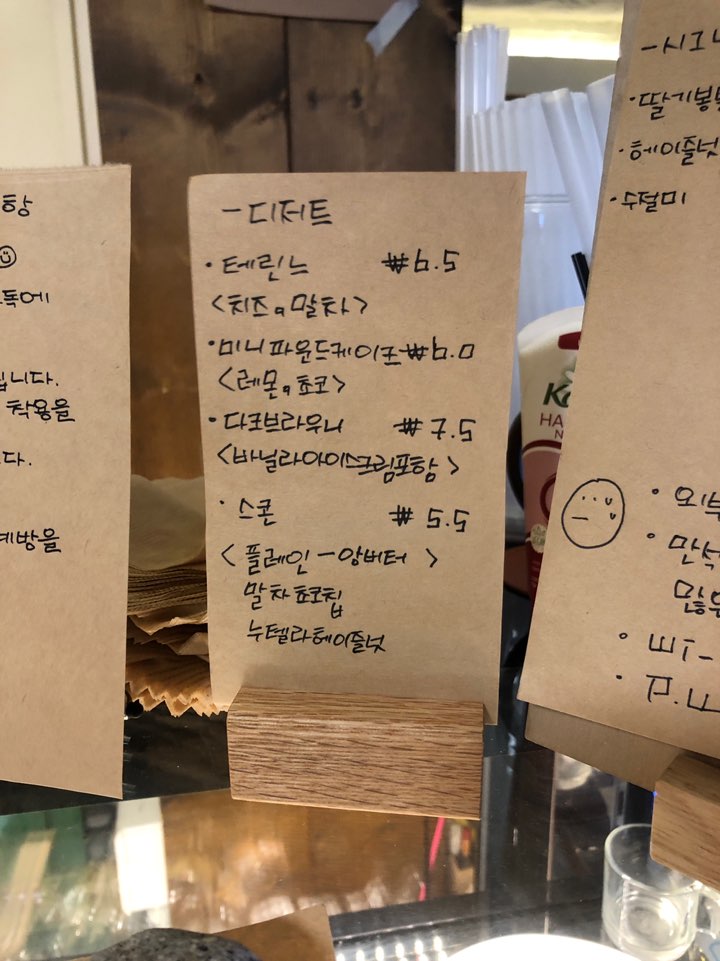 항
독에
니다.
착용을
다.
예방을
- 디저트
· 테린느 ₩6.5
<치즈, 말차>
· 미니파운드케이크 ₩6.0
<레몬, 쵸코>
· 다크브라우니 ₩7.5
<바닐라아이스크림포함>
· 스콘 ₩5.5
< 플레인 - 앙버터 >
말차쵸코칩
누텔라헤이즐넛
- 시그니
· 딸기봉봉
· 헤이즐넛
· 수절미
· 외부
· 만석
많은
· WI-
· P.W
HA